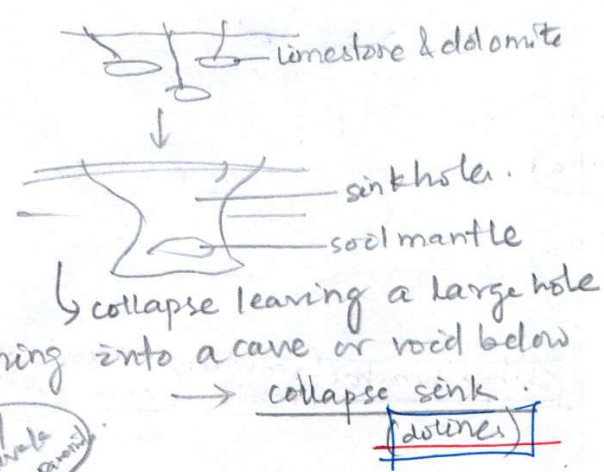 limestone & dolomite
sinkholes.
soil mantle
collapse leaving a large hole
ning into a cave or void below
→ collapse sink.
(dolines)